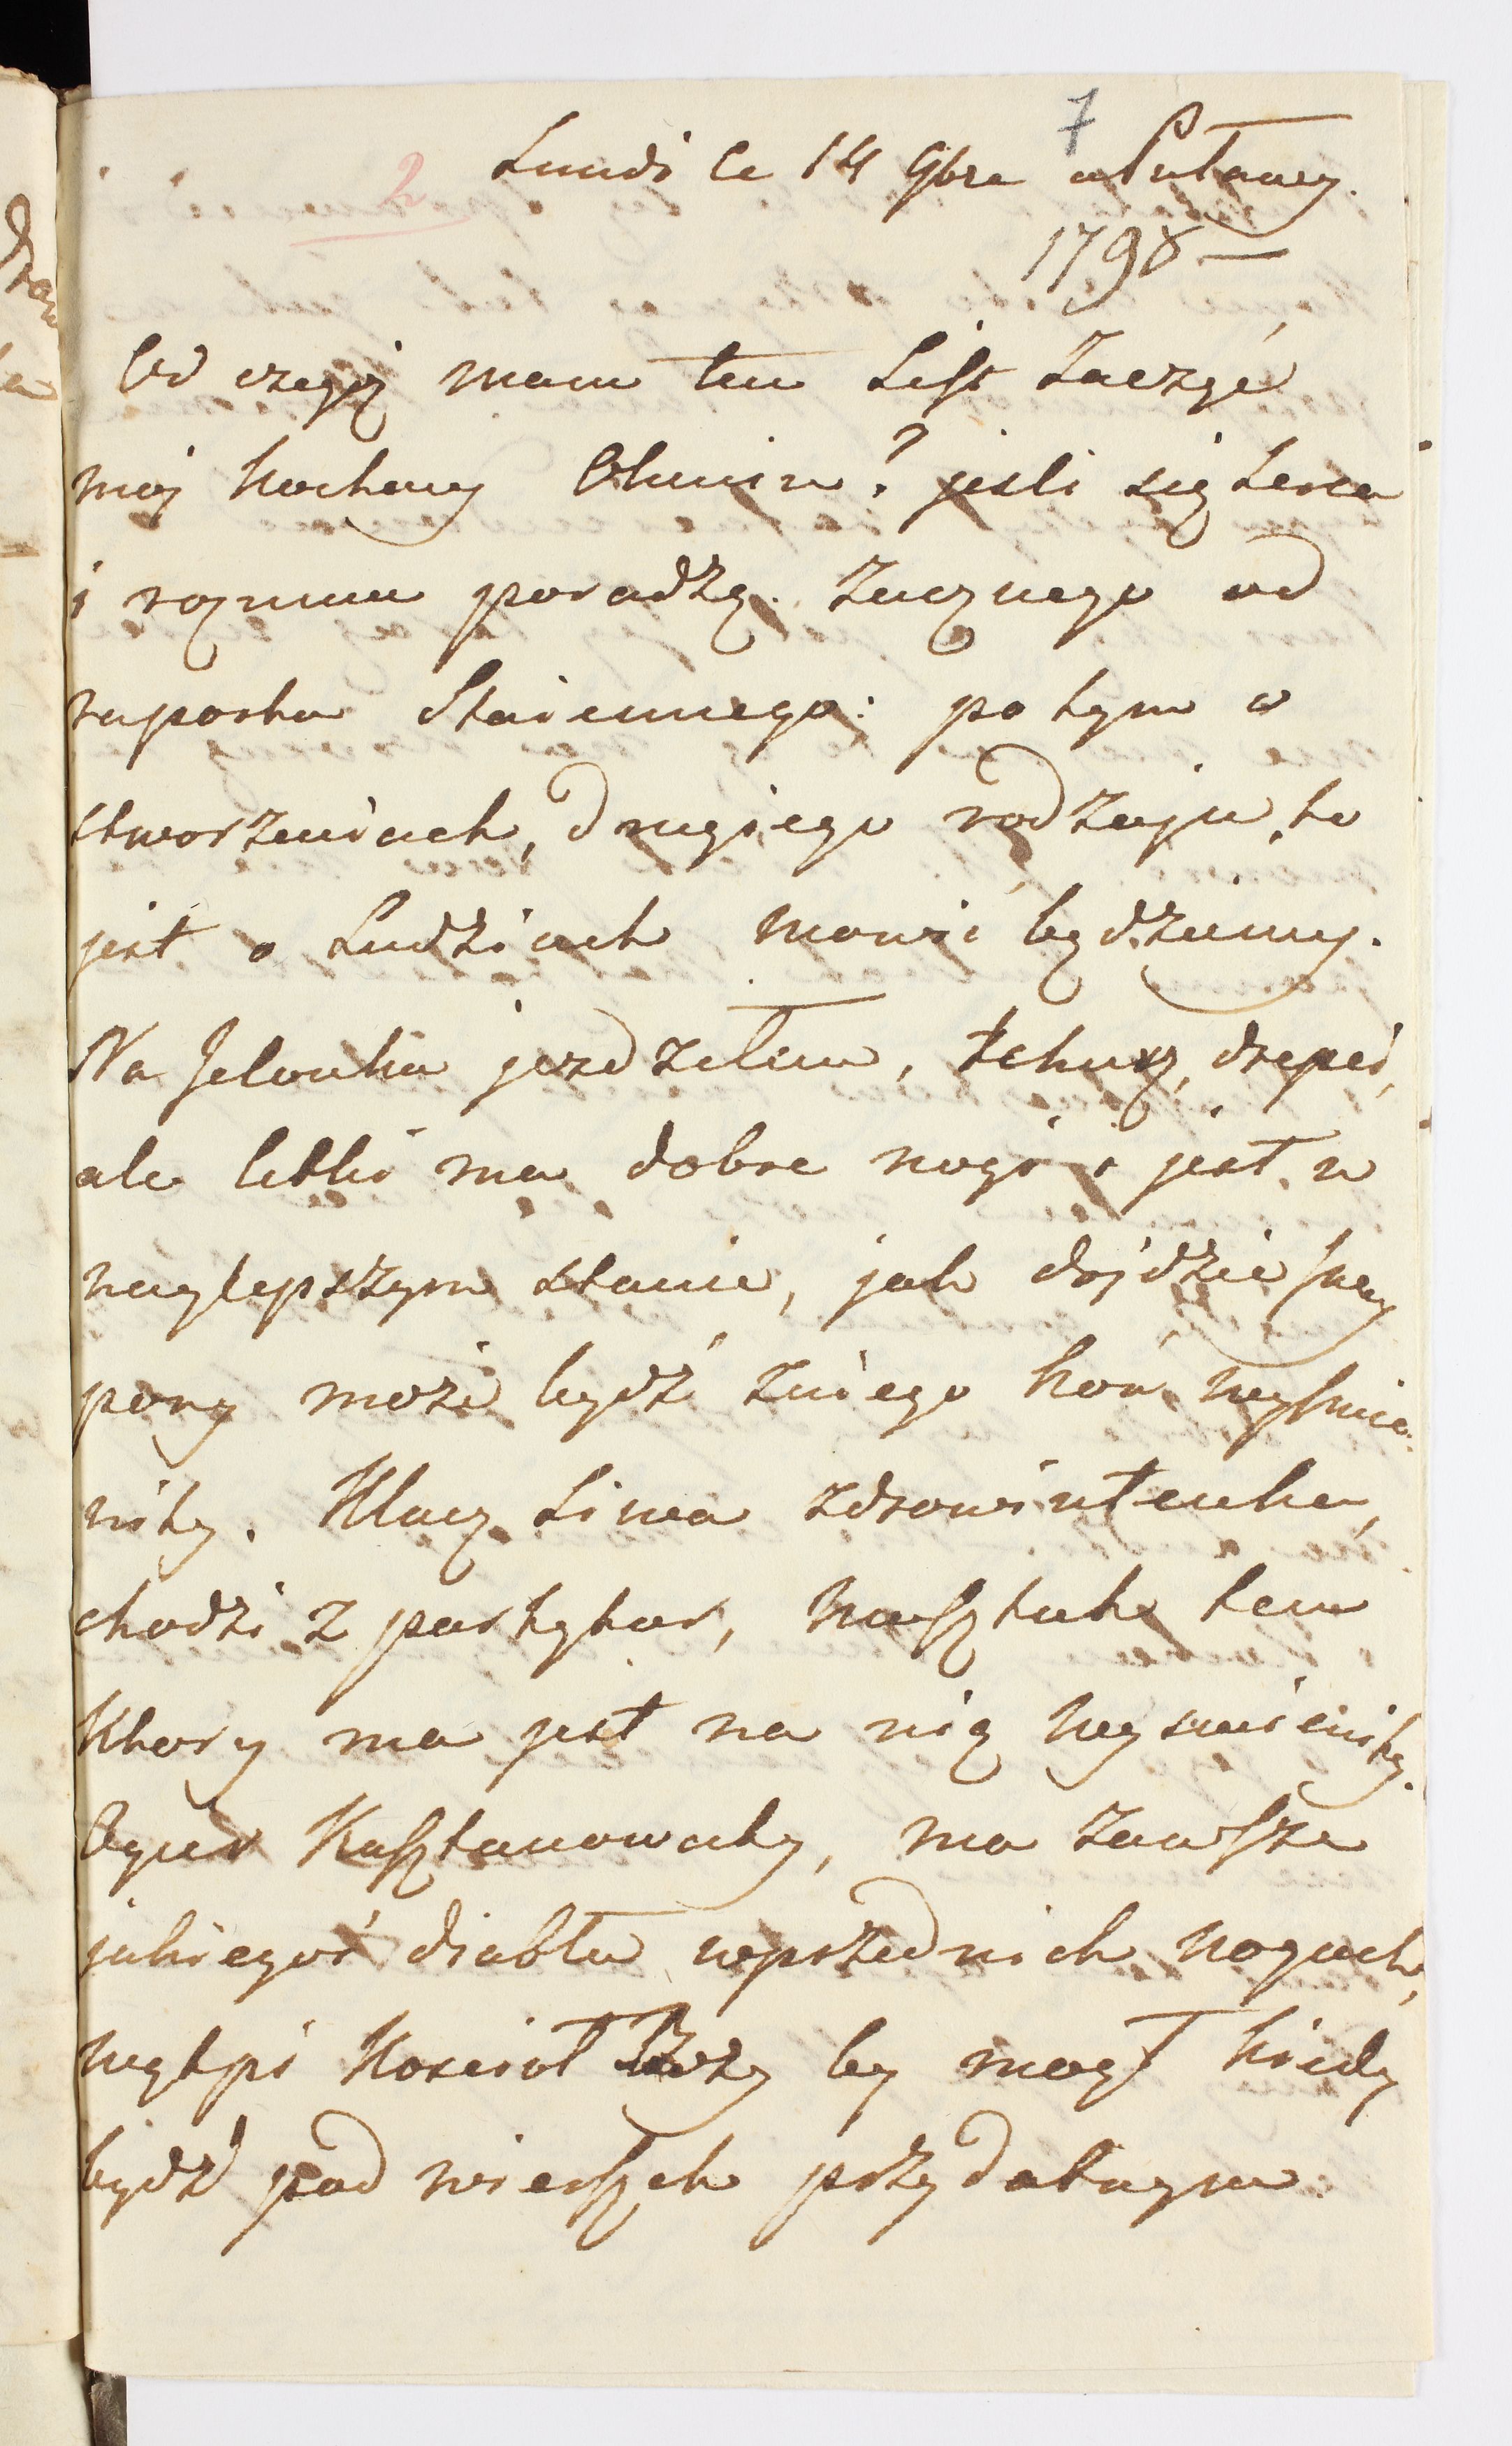 7
2 Lundi le 14 9bre a Puławy.
1798 —
Od czegoj mam ten List Zacząć
moj kochany Chmin? jesli się serca
i rozumu poradzę. Zacznę go od
raportu Staiennego: po tym o
stworzeniach, drugiego rodzaju, to
jest o Ludziach mowić będziemy.
Na Jelonku jezdzełem, tchurz, drepci,
ale letki ma dobre nogi i jest w
naylepszym stanie, jak dojdzie swey
pory może bydź zniego koń wysmie-
nity. Klacz Siwa zdrowiutenka,
chodzi z partykar, Musztuk ten
Ktory ma jest na nią wysmienity.
Ogier Kasztanowaty, ma zawsze
jakiegoś diabła wprzednich nogach,
wątpi Kosciol Boży by mogł kiedy
bydź pod wierzch przydatnym.